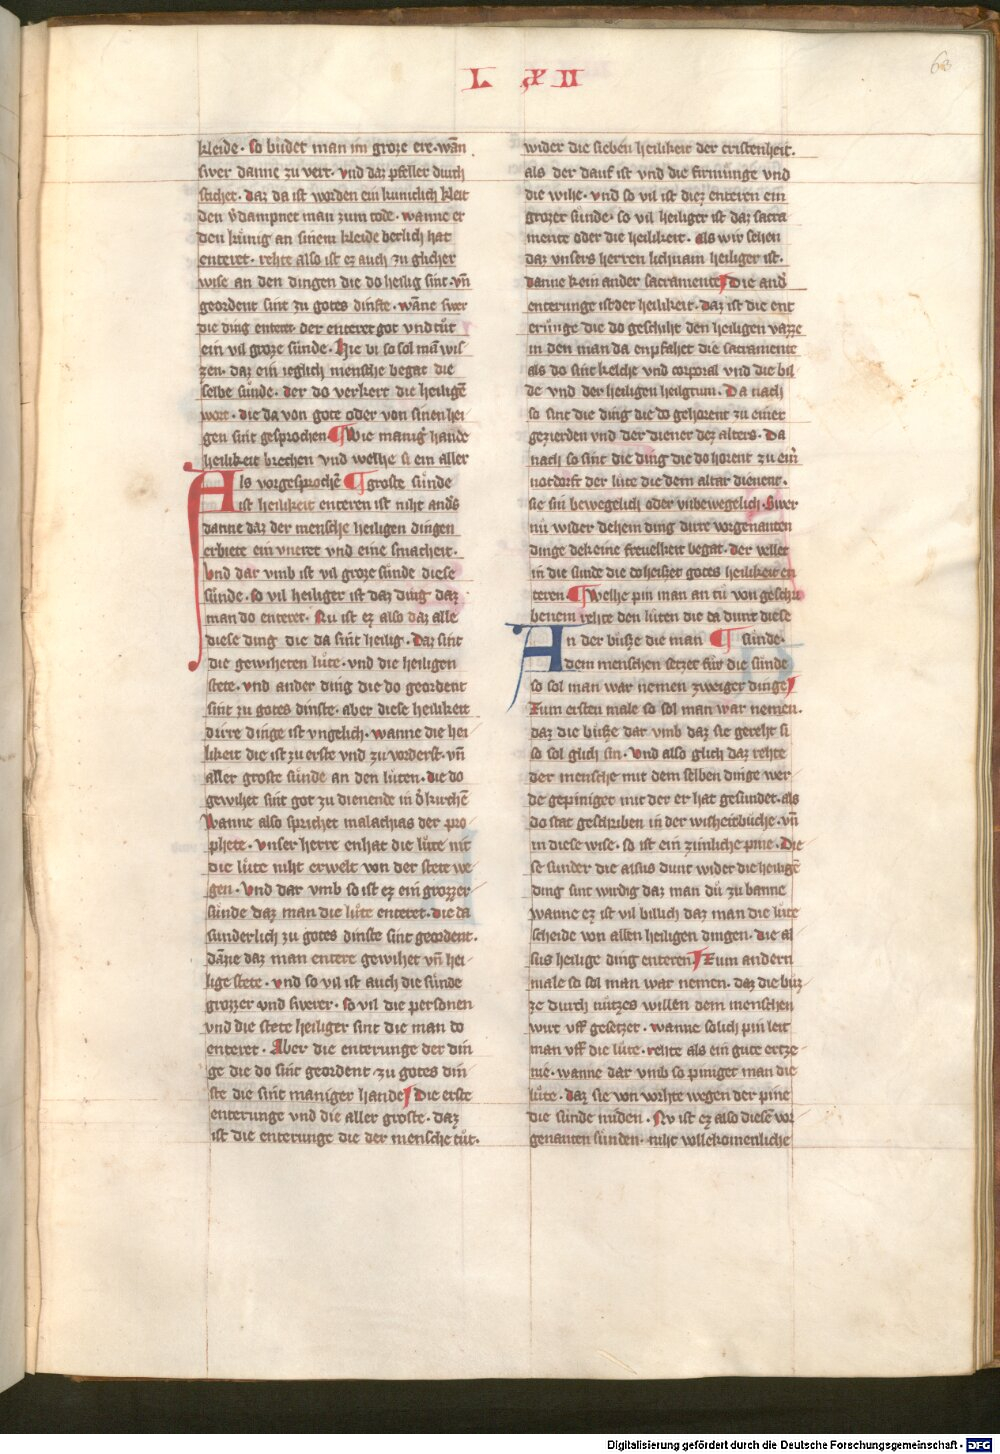 L XII
63
kleide · so bůdet man im groze ere · wān
swer danne zu vert · vnd daz pfeller durch
sichet · daz da ist worden ein kuniclich kleit
den v̄dampnet man zum tode · wanne er
den kůnig an sinem kleide herlich hat
enteret · rehte also ist ez auch zu glicher
wise an den dingen die do heilig sint · vn̄
geordent sint zu gotes dinste · wāne swer
die ding enteret der enteret got vnd tůt
ein vil groze sůnde · Hie bi so sol mā wis
zen · daz ein ieglich mensche begat die
selbe sůnde · der do verkert die heiligē
wort · die da von gote oder von sinen hei
gen sint gesprochen ¶ Wie manig̛ hande
heilikeit brechen vnd welhe si ein aller
Als vorgesprochē ¶ groste sůnde
ist heilikeit enteren ist niht anders
danne daz der mensche heiligen dingen
erbiete ein vneret vnd eine smacheit ·
Vnd dar vmb ist vil groze sůnde diese
sůnde · so vil heiliger ist daz ding daz
man do enteret · Nu ist ez also daz alle
diese ding die da sint heilig · Daz sint
die gewiheten lůte · vnd die heiligen
stete · vnd ander ding die do geordent
sint zu gotes dinste · aber diese heilikeit
dirre dinge ist vngelich · wanne die hei
likeit die ist zu erste vnd zu vorderst · vn̄
aller groste sůnde an den lůten · die do
gewihet sint got zu dienende in d̛ kirchē
Wanne also sprichet malachias der pro
phete · Vnser herre enhat die lůte nit
die lůte niht erwelt von der stete we
gen · Vnd dar vmb so ist ez ein grozzer
sůnde daz man die lůte enteret · die da
sunderlich zu gotes dinste sint geordent ·
dāne daz man entere gewihet vn̄ hei
lige stete · vnd so vil ist auch die sůnde
grozzer vnd swerer · so vil die personen
vnd die stete heiliger sint die man do
enteret · Aber die enterunge der din
ge die do sint geordent zu gotes din
ste die sint maniger hande Die erste
enterunge vnd die aller groste · daz
ist die enterunge die der mensche tůt ·
wider die sieben heilikeit der cristenheit ·
als der dauf ist vnd die firmůnge vnd
die wihe · vnd so vil ist diez enteren ein
grozer sůnde · so vil heiliger ist daz sacra
mente oder die heilikeit · Als wir sehen
daz vnsers herren lichnam heiliger ist ·
danne kein ander sacramente Die and̛
enterunge ist der heilikeit · Daz ist die ent
erůnge die do geschiht den heiligen vazze
in den man da enpfahet die sacramente
als do sint kelche vnd corporal vnd die bil
de vnd der heiligen heilgtum · Da nach
so sint die ding die do gehorent zu einer
gezierden vnd der diener dez alters · Da
nach so sint die ding die do horent zu ein̛
notdorft der lůte die dem altar dienent ·
sie sin bewegelich oder vnbewegelich · Swer
nů wider dehein ding dirre vorgenanten
dinge dekeine freuelkeit begat · der vellet
in die sunde die do heiszet gotes heilikeit en
teren ¶ Welhe pin man an tů von geschri
benem rehte den lůten die da dunt diese
An der bůsze die man ¶ sůnde ·
dem menschen setzet fůr die sůnde
so sol man war nemen zweiger dinge
Zum ersten male so sol man war nemen ·
daz die bůsze dar vmb daz sie gereht si
so sol glich sin · Vnd also glich daz rehte
der mensche mit dem selben dinge wer
de gepiniget mit der er hat gesundet · als
do stat geschriben in der wisheit bůche · vn̄
in diese wise · so ist ein zimliche pine · Die
se sunder die alsus dunt wider die heiligē
ding sint wirdig daz man dů zu banne
wanne ez ist vil billich daz man die lůte
scheide von allen heiligen dingen · die al
sus heilige ding enteren Zum andern
male so sol man war nemen · daz die bůz
ze durch nůtzes willen dem menschen
wirt vff gesetzet · wanne solich pin leit
man vff die lůte · rehte als ein gute ertze
nie · wanne dar vmb so piniget man die
lůte · daz sie von vorhte wegen der pine
die sůnde miden · Nv ist ez also diesen vor
genanten sůnden · niht vollekomenliche
Digitalisierung gefördert durch die Deutsche Forschungsgemeinschaft · DFG